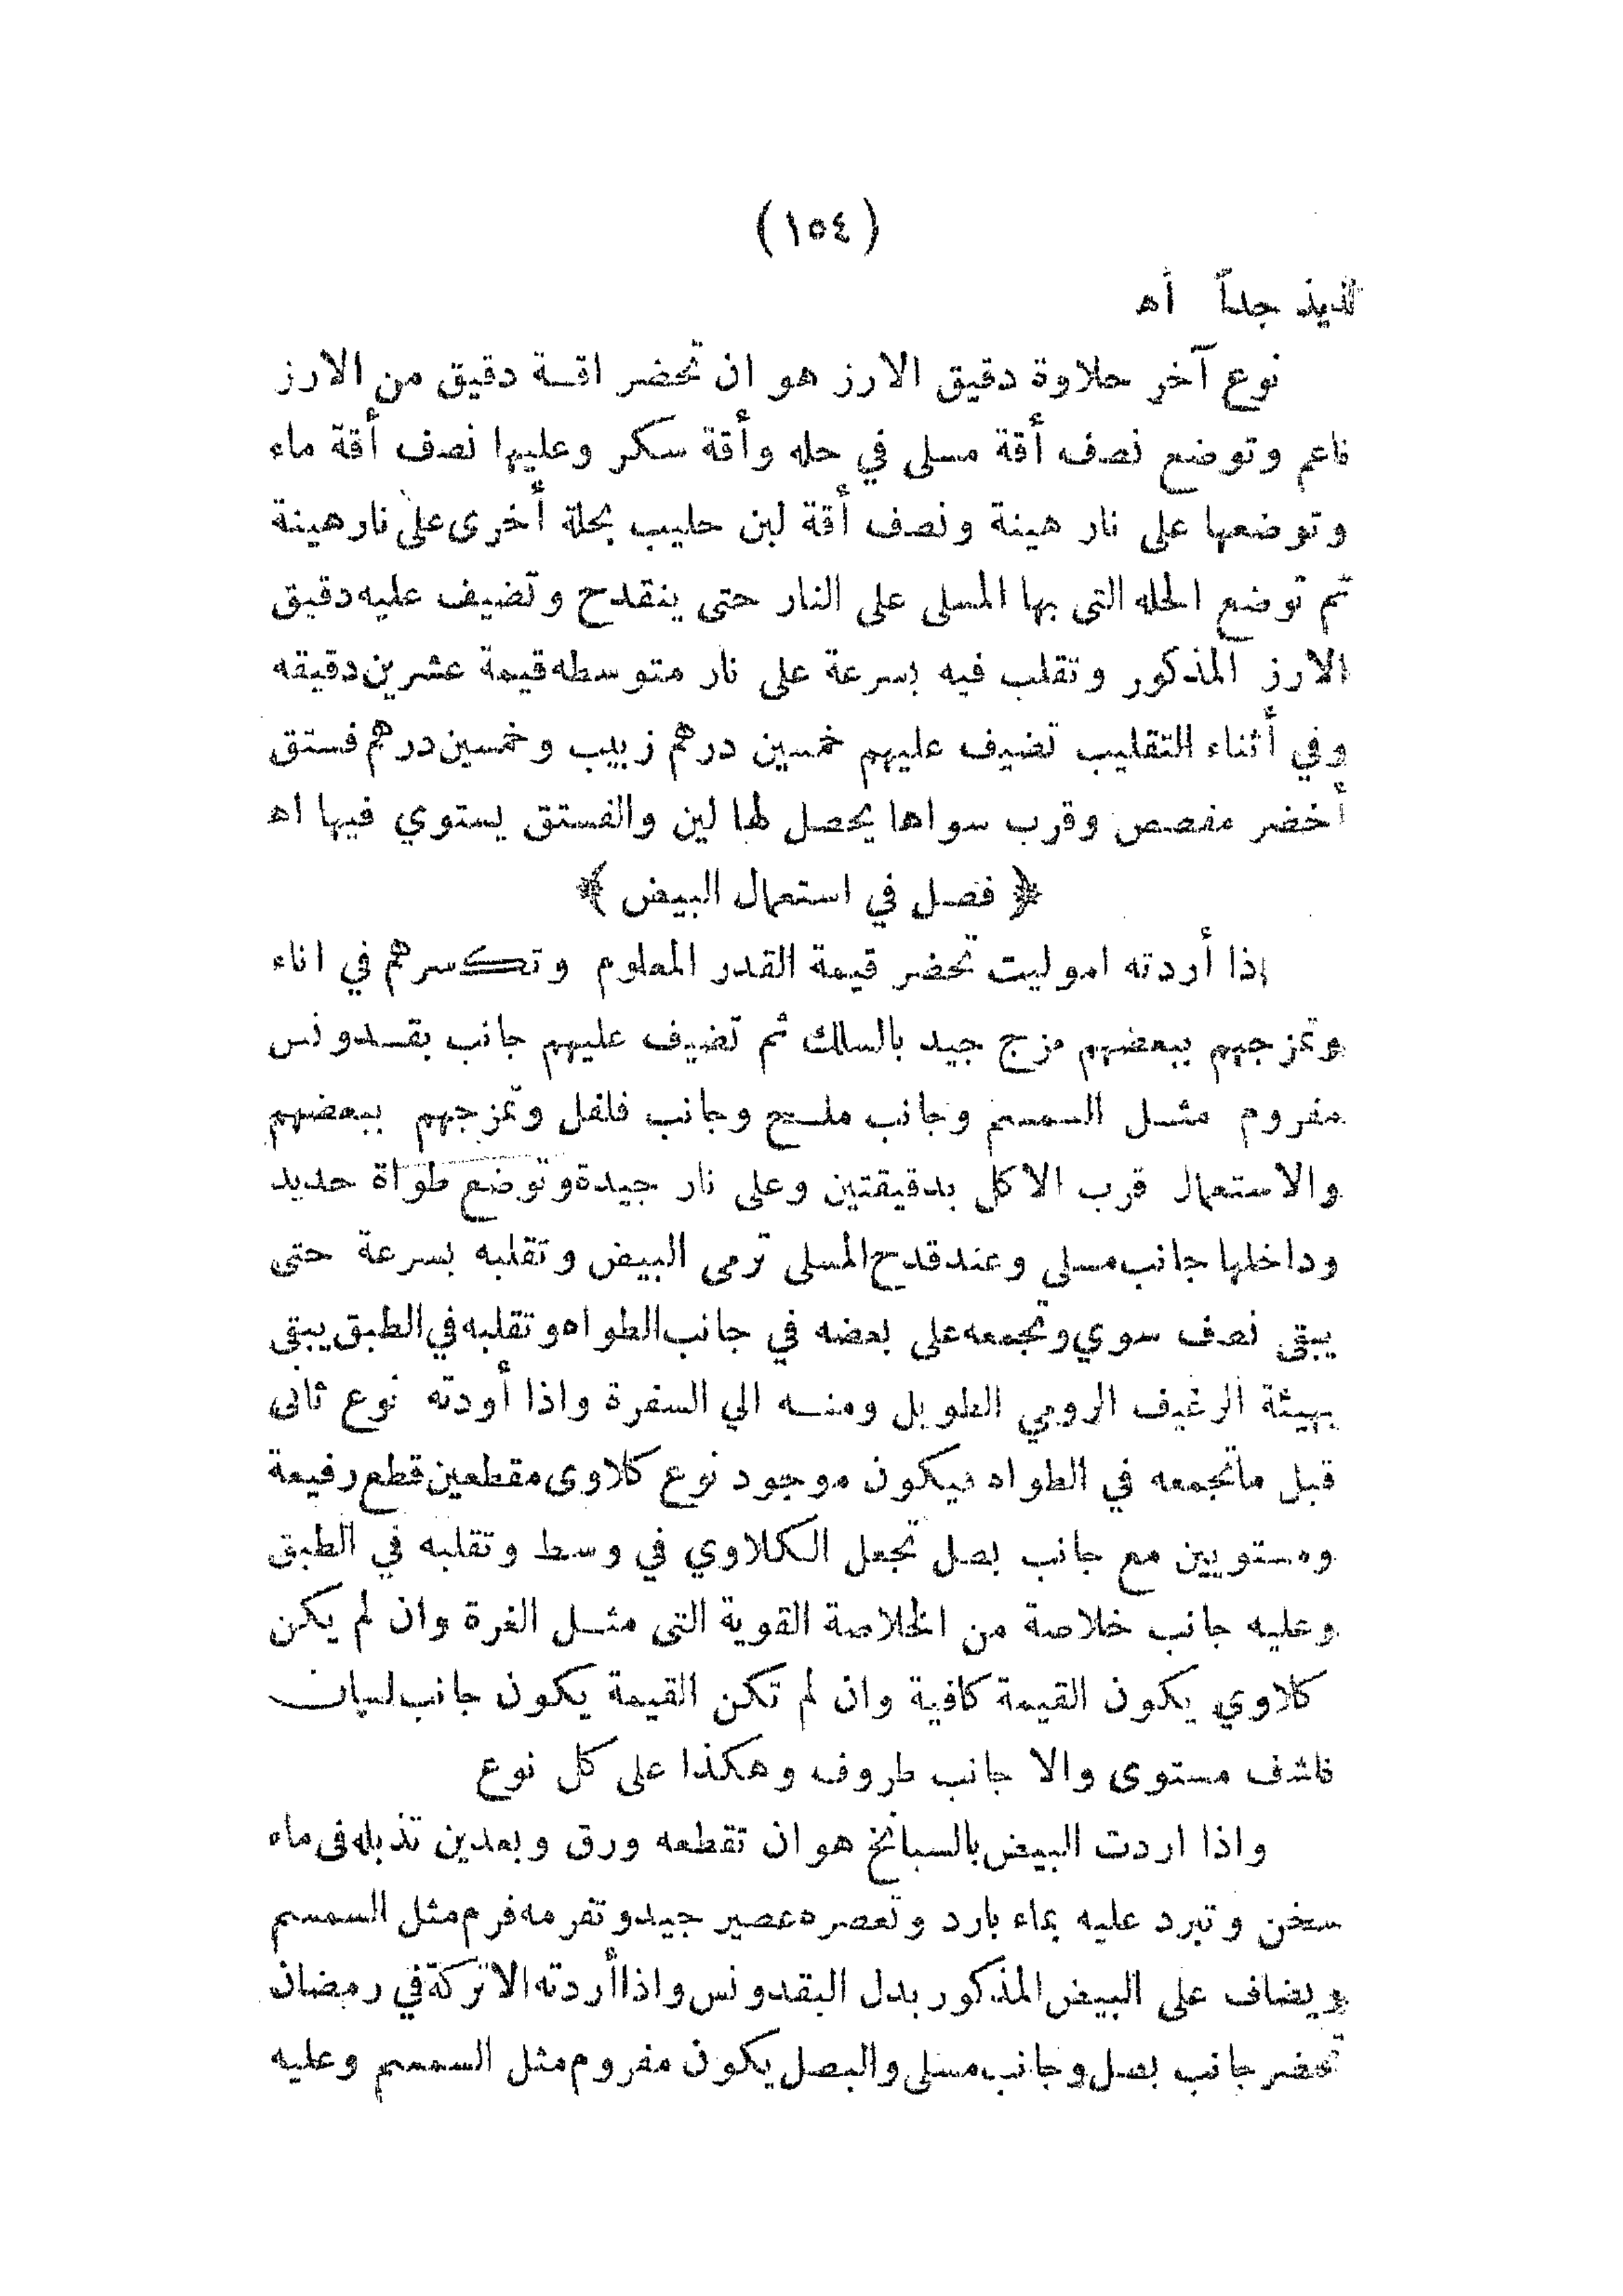 (١٥٤)
لذيذ جداً أه
نوع آخر حلاوة دقيق الارز هو ان تحضر اقة دقيق من الارز
ناعم وتوضع نصف أقة مسلى في حله وأقة سكر وعليها نصف أقة ماء
وتوضعها على نار هينة ونصف أقة لبن حليب بحلة أخرى على نار هينة
ثم توضع الحله التى بها المسلى على النار حتى ينقدح وتضيف عليه دقيق
الارز المذكور وتقلب فيه بسرعة على نار متوسطه قيمة عشرين دقيقه
وفي أثناء التقليب تضيف عليهم خمسين درهم زبيب وخمسين درهم فستق
أخضر مفصص وقرب سواها يحصل لها لين والفستق يستوي فيها اه
﴿ فصل في استعمال البيض ﴾
إذا أردته اموليت تحضر قيمة القدر المعلوم وتكسرهم في اناء
وتمزجهم ببعضهم مزج جيد بالسلك ثم تضيف عليهم جانب بقدونس
مفروم مثل السمسم وجانب ملح وجانب فلفل وتمزجهم ببعضهم
والاستعمال قرب الاكل بدقيقتين وعلى نار جيدة وتوضع طواة حديد
وداخلها جانب مسلى وعند قدح المسلى ترمى البيض وتقلبه بسرعة حتى
يبقى نصف سوي وتجمعه على بعضه في جانب الطواه وتقلبه في الطبق يبقى
بهيئة الرغيف الرومي الطويل ومنه الي السفرة واذا أودته نوع ثانى
قبل ماتجمعه في الطواه فيكون موجود نوع كلاوى مقطعين قطع رفيعة
ومستويين مع جانب بصل تجعل الكلاوي في وسط وتقلبه في الطبق
وعليه جانب خلاصة من الخلاصة القوية التى مثل الغرة وان لم يكن
كلاوي يكون القيمة كافية وان لم تكن القيمة يكون جانب لسان
ناشف مستوى والا جانب طروف وهكذا على كل نوع
واذا اردت البيض بالسبانخ هو ان تقطعه ورق وبعدين تذبله فى ماء
سخن وتبرد عليه بماء بارد وتعصره عصير جيد وتفرمه فرم مثل السمسم
ويضاف على البيض المذكور بدل البقدونس واذا أردته الاتركة في رمضان
تحضر جانب بصل وجانب مسلى والبصل يكون مفروم مثل السمسم وعليه